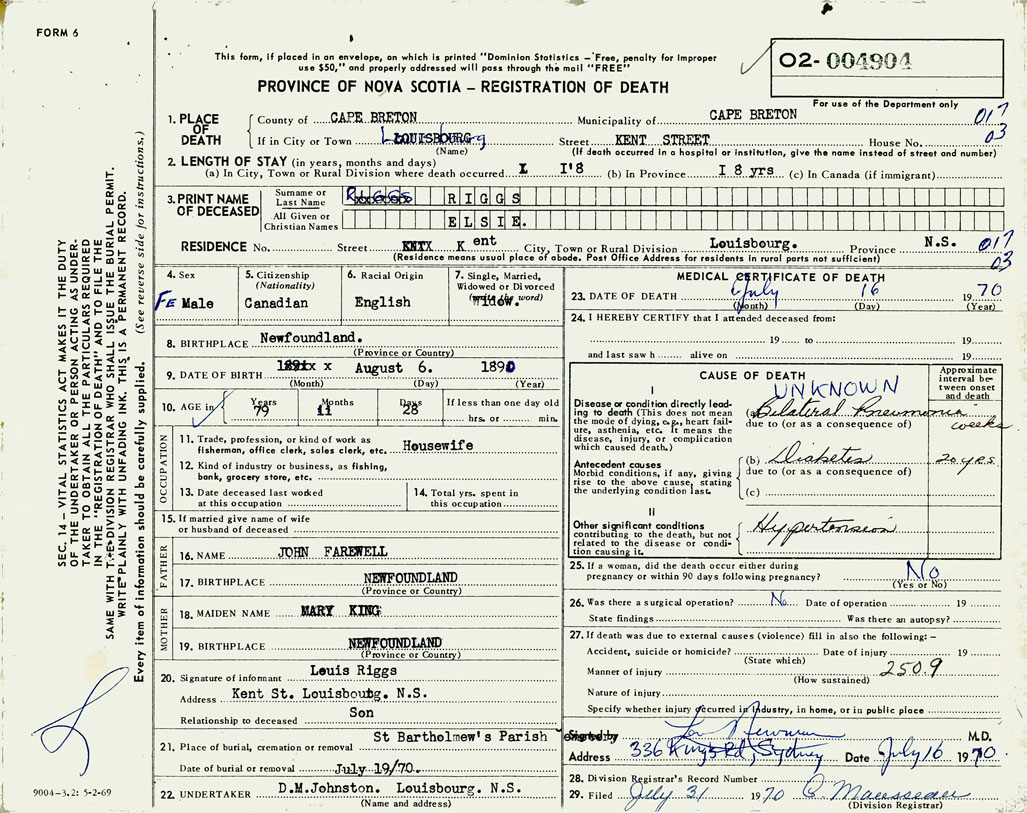 FORM 6
This form, if placed in an envelope, on which is printed "Dominion Statistics – Free, penalty for improper
use $50," and properly addressed will pass through the mail "FREE"
PROVINCE OF NOVA SCOTIA – REGISTRATION OF DEATH
O2-004904
For use of the Department only
1. PLACE OF DEATH
County of CAPE BRETON Municipality of CAPE BRETON 017
If in City or Town Louisbourg Street KENT STREET House No. 03
(Name) (If death occurred in a hospital or institution, give the name instead of street and number)
2. LENGTH OF STAY (in years, months and days)
(a) In City, Town or Rural Division where death occurred I I'8 (b) In Province I 8 yrs (c) In Canada (if immigrant)
3. PRINT NAME OF DECEASED
Surname or Last Name RIGGS
All Given or Christian Names ELSIE.
RESIDENCE No. Street Kent City, Town or Rural Division Louisbourg. Province N.S. 017
(Residence means usual place of abode. Post Office Address for residents in rural parts not sufficient) 03
4. Sex Fe Male
5. Citizenship (Nationality) Canadian
6. Racial Origin English
7. Single, Married, Widowed or Divorced (write the word) Widow.
8. BIRTHPLACE Newfoundland.
(Province or Country)
9. DATE OF BIRTH x x August 6. 1890
(Month) (Day) (Year)
10. AGE in Years Months Days If less than one day old
79 11 28 hrs. or min.
OCCUPATION
11. Trade, profession, or kind of work as
fisherman, office clerk, sales clerk, etc. Housewife
12. Kind of industry or business, as fishing,
bank, grocery store, etc.
13. Date deceased last worked
at this occupation
14. Total yrs. spent in
this occupation
15. If married give name of wife
or husband of deceased
FATHER
16. NAME JOHN FAREWELL
17. BIRTHPLACE NEWFOUNDLAND
(Province or Country)
MOTHER
18. MAIDEN NAME MARY KING
19. BIRTHPLACE NEWFOUNDLAND
(Province or Country)
20. Signature of informant Louis Riggs
Address Kent St. Louisbourg. N.S.
Relationship to deceased Son
21. Place of burial, cremation or removal St Bartholmew's Parish
Date of burial or removal July 19/70.
22. UNDERTAKER D.M.Johnston. Louisbourg. N.S.
(Name and address)
MEDICAL CERTIFICATE OF DEATH
23. DATE OF DEATH July 16 1970
(Month) (Day) (Year)
24. I HEREBY CERTIFY that I attended deceased from:
19 to 19
and last saw h alive on 19
CAUSE OF DEATH
Approximate interval between onset and death
UNKNOWN
I
Disease or condition directly leading to death (This does not mean the mode of dying, e.g., heart failure, asthenia, etc. It means the disease, injury, or complication which caused death.)
(a) Bilateral Pneumonia weeks
due to (or as a consequence of)
Antecedent causes
Morbid conditions, if any, giving rise to the above cause, stating the underlying condition last.
(b) Diabetes 20 yrs
due to (or as a consequence of)
(c)
II
Other significant conditions
contributing to the death, but not related to the disease or condition causing it.
Hypertension
25. If a woman, did the death occur either during
pregnancy or within 90 days following pregnancy? No
(Yes or No)
26. Was there a surgical operation? No Date of operation 19
State findings Was there an autopsy?
27. If death was due to external causes (violence) fill in also the following: –
Accident, suicide or homicide? Date of injury 19
(State which)
Manner of injury 250.9
(How sustained)
Nature of injury
Specify whether injury occurred in Industry, in home, or in public place
Signed by M.D.
Address 336 Kings Rd, Sydney Date July 16 1970
28. Division Registrar's Record Number
29. Filed July 31 1970
(Division Registrar)
SEC. 14 – VITAL STATISTICS ACT MAKES IT THE DUTY
OF THE UNDERTAKER OR PERSON ACTING AS UNDER-
TAKER TO OBTAIN ALL THE PARTICULARS REQUIRED
IN THE "REGISTRATION OF DEATH" AND TO FILE THE
SAME WITH THE DIVISION REGISTRAR WHO SHALL ISSUE THE BURIAL PERMIT.
WRITE PLAINLY WITH UNFADING INK. THIS IS A PERMANENT RECORD.
Every item of information should be carefully supplied. (See reverse side for instructions.)
9004-3.2: 5-2-69